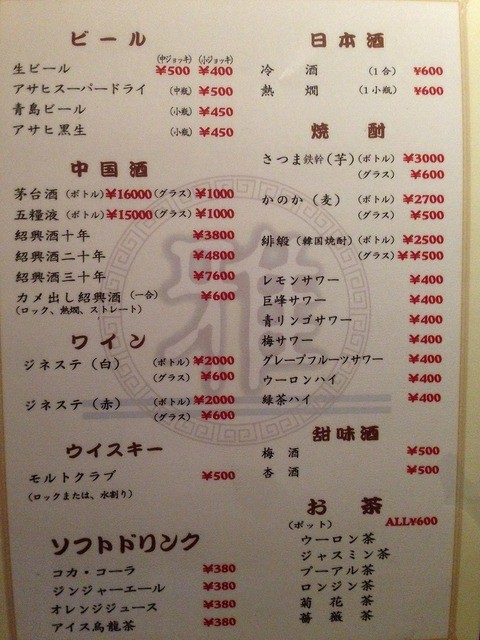 ビール
(中ジョッキ) (小ジョッキ)
生ビール ¥500 ¥400
アサヒスーパードライ (中瓶) ¥500
青島ビール (小瓶) ¥450
アサヒ黒生 (小瓶) ¥450
中国酒
茅台酒 (ボトル) ¥16000 (グラス) ¥1000
五糧液 (ボトル) ¥15000 (グラス) ¥1000
紹興酒十年 ¥3800
紹興酒二十年 ¥4800
紹興酒三十年 ¥7600
カメ出し紹興酒 (一合) ¥600
(ロック、熱燗、ストレート)
ワイン
ジネステ (白) (ボトル) ¥2000
(グラス) ¥600
ジネステ (赤) (ボトル) ¥2000
(グラス) ¥600
ウイスキー
モルトクラブ ¥500
(ロックまたは、水割り)
ソフトドリンク
コカ・コーラ ¥380
ジンジャーエール ¥380
オレンジジュース ¥380
アイス烏龍茶 ¥380
日本酒
冷酒 (1合) ¥600
熱燗 (1小瓶) ¥600
焼酎
さつま鉄幹 (芋) (ボトル) ¥3000
(グラス) ¥600
かのか (麦) (ボトル) ¥2700
(グラス) ¥500
緋緞 (韓国焼酎) (ボトル) ¥2500
(グラス) ¥¥500
レモンサワー ¥400
巨峰サワー ¥400
青リンゴサワー ¥400
梅サワー ¥400
グレープフルーツサワー ¥400
ウーロンハイ ¥400
緑茶ハイ ¥400
甜味酒
梅酒 ¥500
杏酒 ¥500
お茶
(ポット) ALL¥600
ウーロン茶
ジャスミン茶
プーアル茶
ロンジン茶
菊花茶
薔薇茶